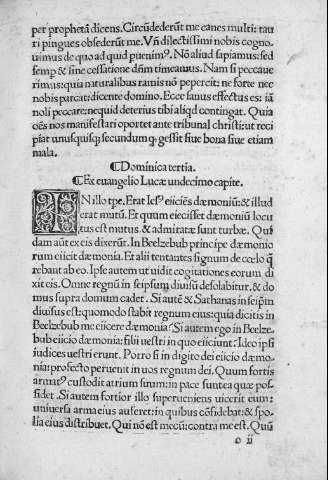 per prophetã dicens. Circũdederũt me canes multi: tau
ri pingues obsederũt me. Vñ dilectissimi nobis cogno
uimus de quo ad quid puenim⁹. Nõ aliud sapiamus: sed
semp & sine cessatione dñm timeamus. Nam si peccaue
rimus: quia naturalibus ramis nõ pepercit: ne forte nec
nobis parcat: dicente domino. Ecce sanus effectus es: iã
noli peccare: nequid deterius tibi aliqd contingat. Quia
oẽs nos manifestari oportet ante tribunal christi: ut reci
piat unusquisq; secundum q; gessit siue bona siue etiam
mala.
¶Dominica tertia.
¶Ex euangelio Lucæ undecimo capite.
IN illo tpe. Erat Ies⁹ eiiciẽs dæmoniũ: & illud
erat mutũ. Et quum eiecisset dæmoniũ locu
tus est mutus & admiratæ sunt turbæ. Qui
dam aũt ex eis dixerũt. In Beelzebub principe dæmonio
rum eiicit dæmonia. Et alii tentantes signum de cœlo q̃
rebant ab eo. Ipse autem ut uidit cogitationes eorum di
xit eis. Omne regnũ in seipsum diuisũ desolabitur. & do
mus supra domum cadet. Si autẽ & Sathanas in seipm
diuisus est: quomodo stabit regnum eius: quia dicitis in
Beelzebub me eiicere dæmonia? Si autem ego in Beelze
bub eiicio dæmonia: filii uestri in quo eiiciunt? Ideo ipsi
iudices uestri erunt. Porro si in digito dei eiicio dæmo
nia: profecto peruenit in uos regnum dei. Quum fortis
armat⁹ custodit atrium suum: in pace sunt ea quæ pos
sidet. Si autem fortior illo superueniens uicerit eum:
uniuersa arma eius auferet: in quibus cõfidebat: & spo
lia eius distribuet. Qui nõ est mecũ: contra me est. Quũ
o ii